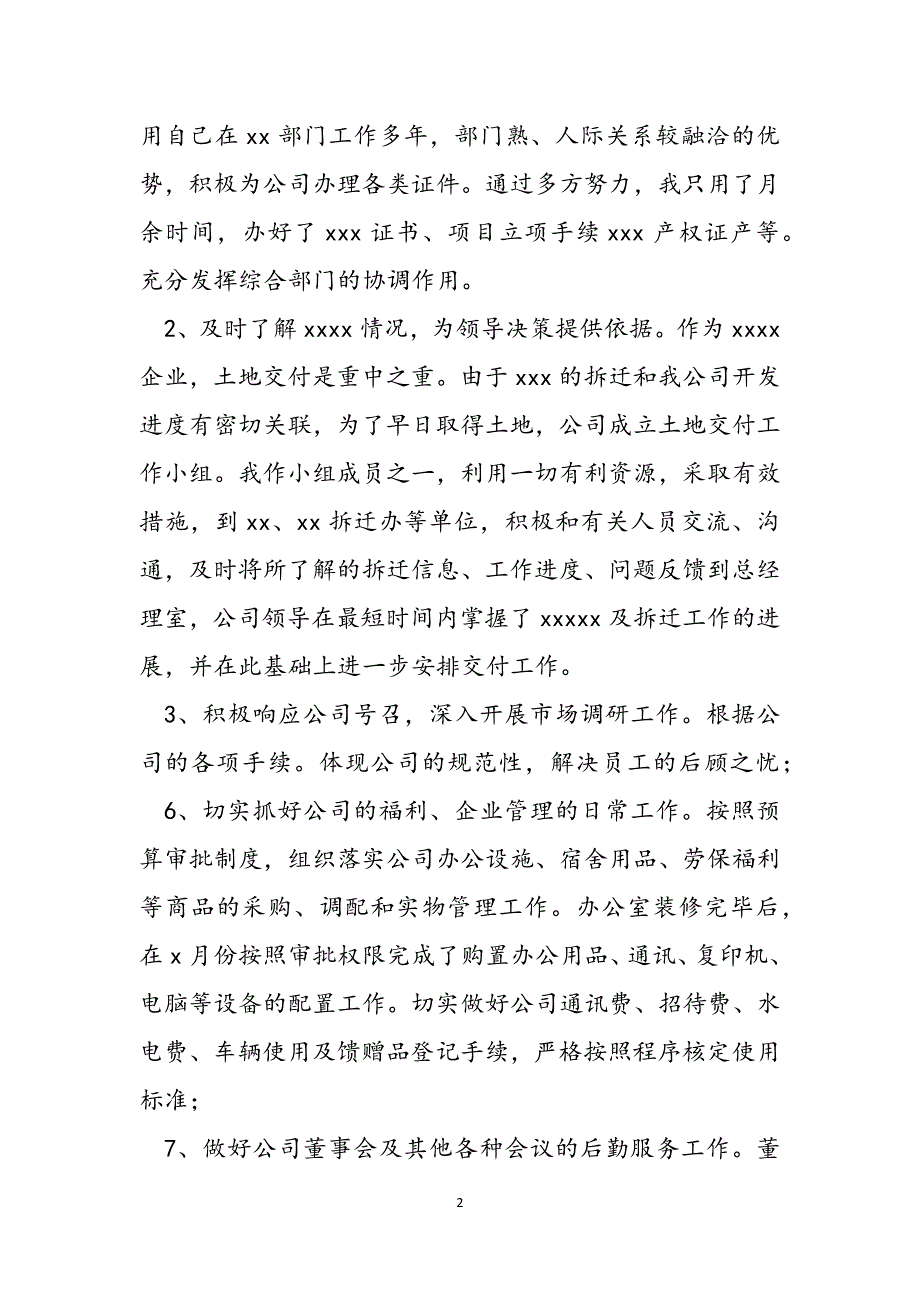 用自己在 xx 部门工作多年，部门熟、人际关系较融洽的优
势，积极为公司办理各类证件。通过多方努力，我只用了月
余时间，办好了 xxx 证书、项目立项手续 xxx 产权证产等。
充分发挥综合部门的协调作用。
2、及时了解 xxxx 情况，为领导决策提供依据。作为 xxxx
企业，土地交付是重中之重。由于 xxx 的拆迁和我公司开发
进度有密切关联，为了早日取得土地，公司成立土地交付工
作小组。我作小组成员之一，利用一切有利资源，采取有效
措施，到 xx、xx 拆迁办等单位，积极和有关人员交流、沟
通，及时将所了解的拆迁信息、工作进度、问题反馈到总经
理室，公司领导在最短时间内掌握了 xxxxx 及拆迁工作的进
展，并在此基础上进一步安排交付工作。
3、积极响应公司号召，深入开展市场调研工作。根据公
司的各项手续。体现公司的规范性，解决员工的后顾之忧；
6、切实抓好公司的福利、企业管理的日常工作。按照预
算审批制度，组织落实公司办公设施、宿舍用品、劳保福利
等商品的采购、调配和实物管理工作。办公室装修完毕后，
在 x 月份按照审批权限完成了购置办公用品、通讯、复印机、
电脑等设备的配置工作。切实做好公司通讯费、招待费、水
电费、车辆使用及馈赠品登记手续，严格按照程序核定使用
标准；
7、做好公司董事会及其他各种会议的后勤服务工作。董
2